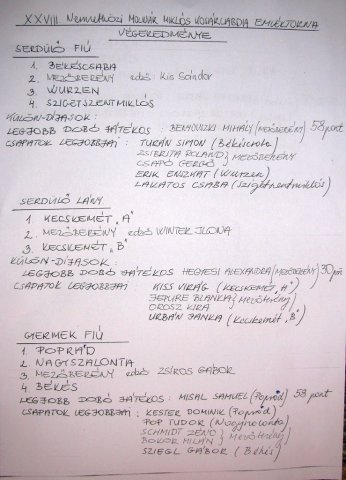 XXVIII. Nemzetközi MOLNÁR MIKLÓS KOSÁRLABDA EMLÉKTORNA
VÉGEREDMÉNYE
SERDÜLŐ FIÚ
1. BÉKÉSCSABA
2. MEZŐBERÉNY edző: Kis Sándor
3. WURZEN
4. SZIGETSZENTMIKLÓS
KÜLÖN-DÍJASOK:
LEGJOBB DOBÓ JÁTÉKOS: BENYOVSZKI MIHÁLY (MEZŐBERÉNY) 58 pont
CSAPATOK LEGJOBBJAI: TURÁN SIMON (Békéscsaba)
ZSIBRITA ROLAND } MEZŐBERÉNY
CSAPÓ GERGŐ
ERIK (Wurzen)
LAKATOS CSABA (Szigetszentmiklós)
SERDÜLŐ LÁNY
1. KECSKEMÉT „A"
2. MEZŐBERÉNY edző WINTER ILONA
3. KECSKEMÉT „B"
KÜLÖN-DÍJASOK:
LEGJOBB DOBÓ JÁTÉKOS HEGYESI ALEXANDRA (MEZŐBERÉNY) 30 pont
CSAPATOK LEGJOBBJAI: KISS VIRÁG (Kecskemét „A")
BLANKA } Mezőberény
OROSZ KIRA
URBÁN JANKA (Kecskemét „B")
GYERMEK FIÚ
1. POPRÁD
2. NAGYSZALONTA
3. MEZŐBERÉNY edző ZSÍROS GÁBOR
4 BÉKÉS
LEGJOBB DOBÓ JÁTÉKOS: MISAL SAMUEL (Poprád) 58 pont
CSAPATOK LEGJOBBJAI: KESTER DOMINIK (Poprád)
POP TUDOR (Nagyszalonta)
SCHMIDT ZÉNÓ } Mezőberény
BOKOR MILÁN
SZIEGL GÁBOR (Békés)